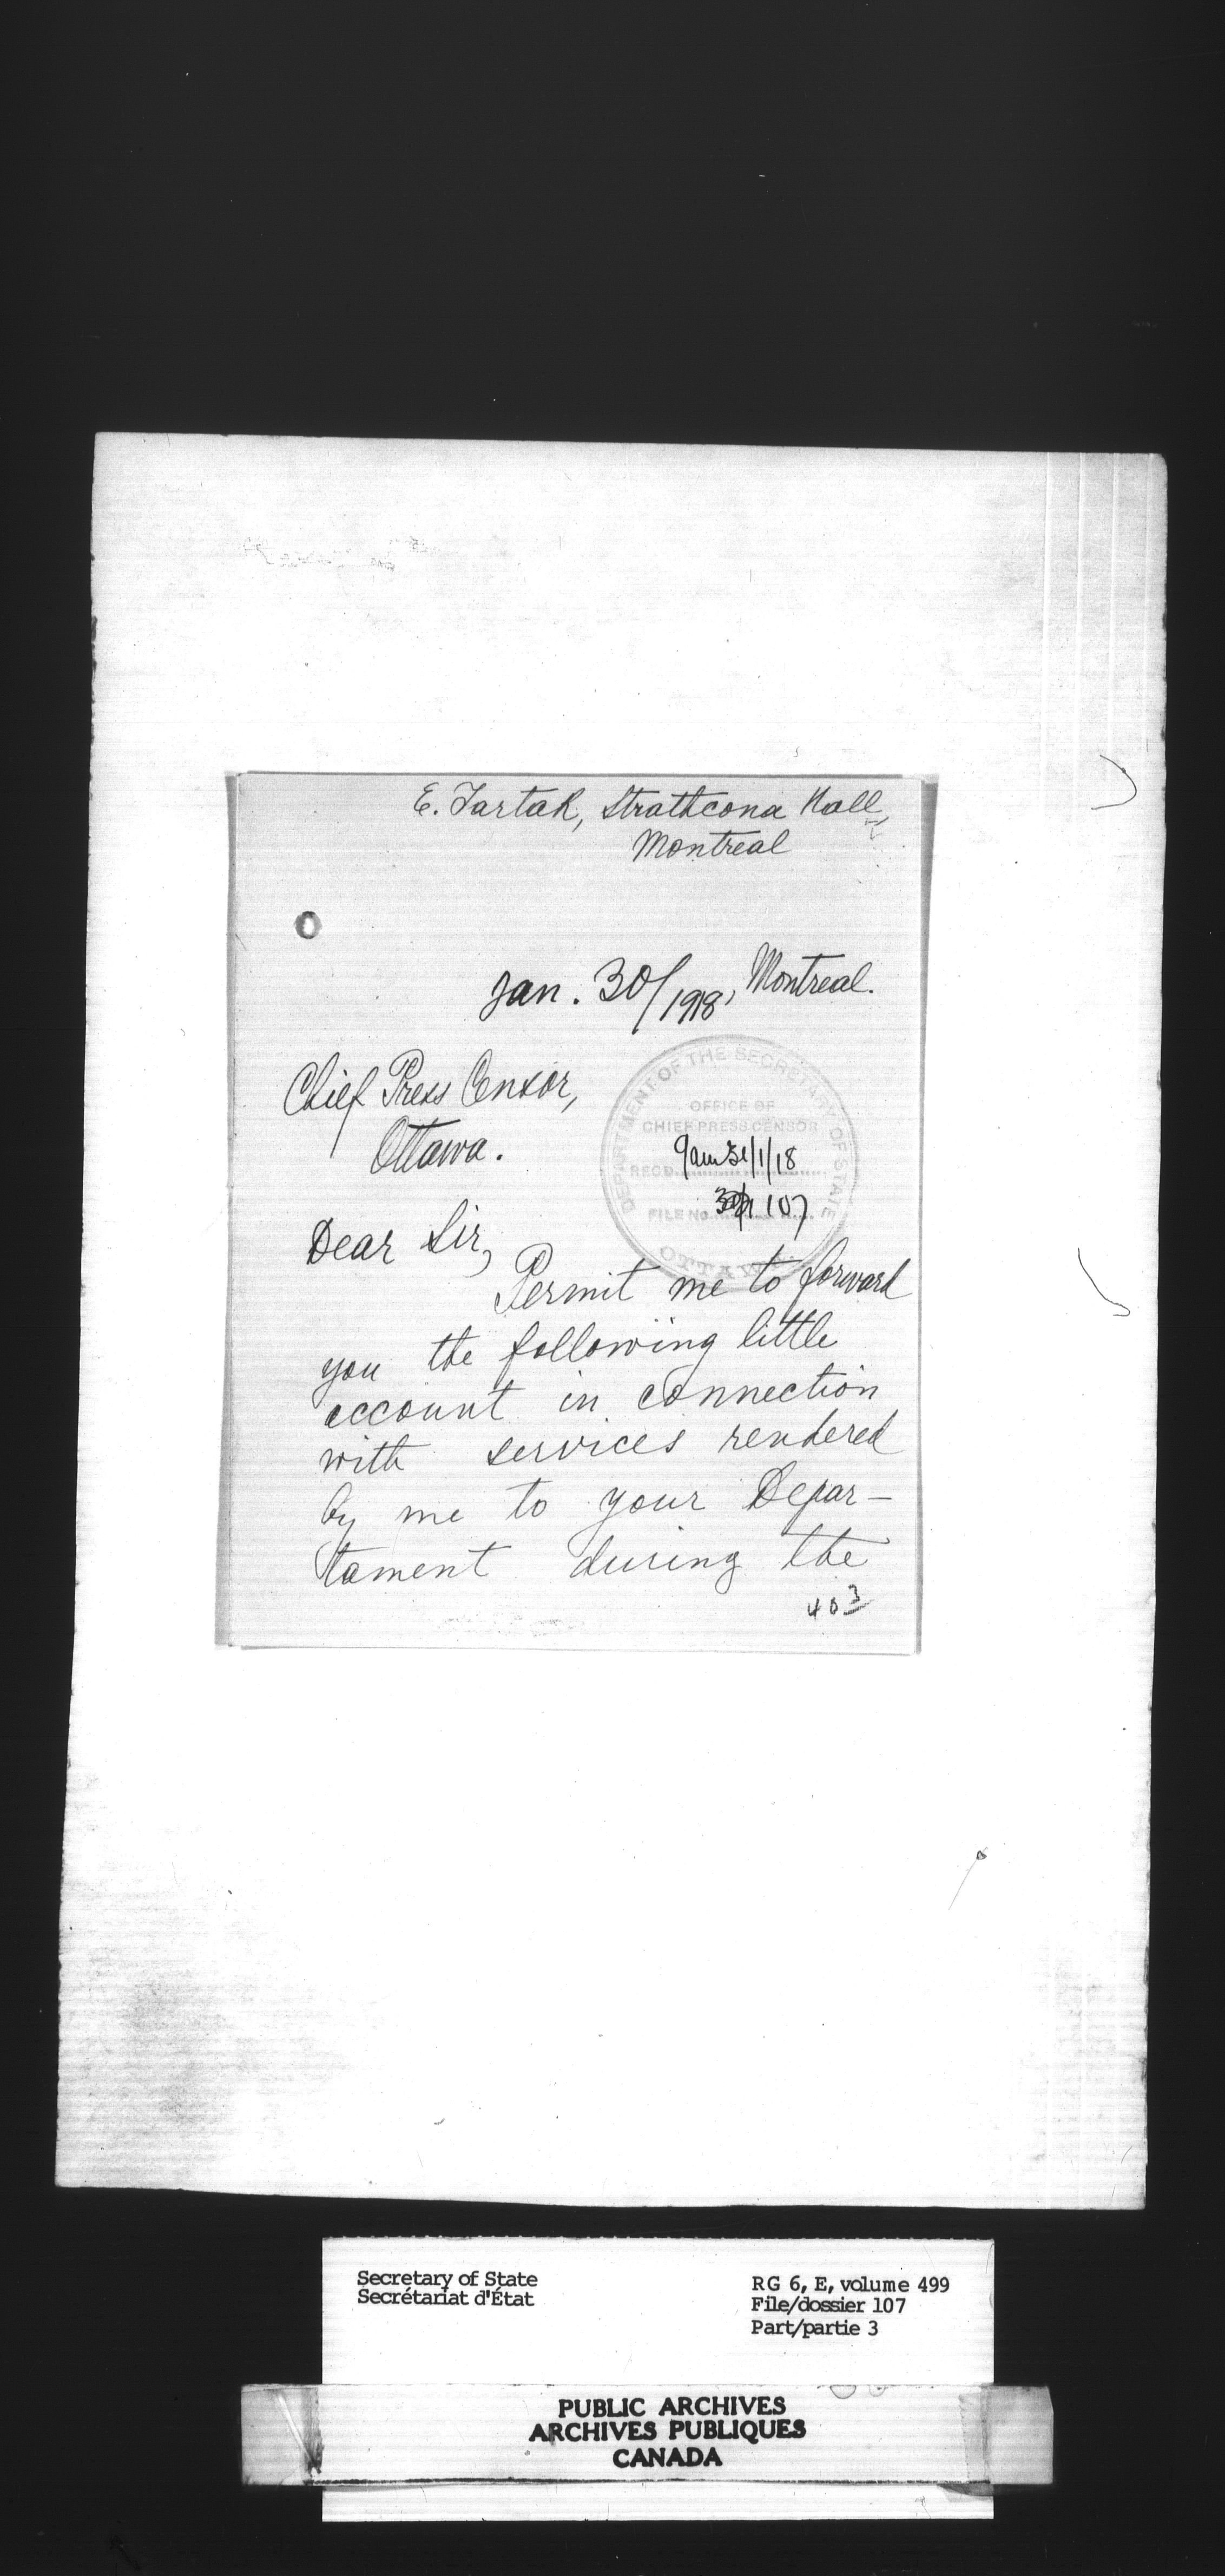 E. Tartak, Strathcona Hall,
Montreal
Jan. 30/1918, Montreal.
Chief Press Censor,
Ottawa.
DEPARTMENT OF THE SECRETARY OF STATE
OFFICE OF
CHIEF PRESS CENSOR
REC'D 9am 31/1/18
FILE No. 107
OTTAWA
Dear Sir,
Permit me to forward
you the following little
account in connection
with services rendered
by me to your Depar-
tament during the
403
Secretary of State
Secrétariat d'État
RG 6, E, volume 499
File/dossier 107
Part/partie 3
PUBLIC ARCHIVES
ARCHIVES PUBLIQUES
CANADA